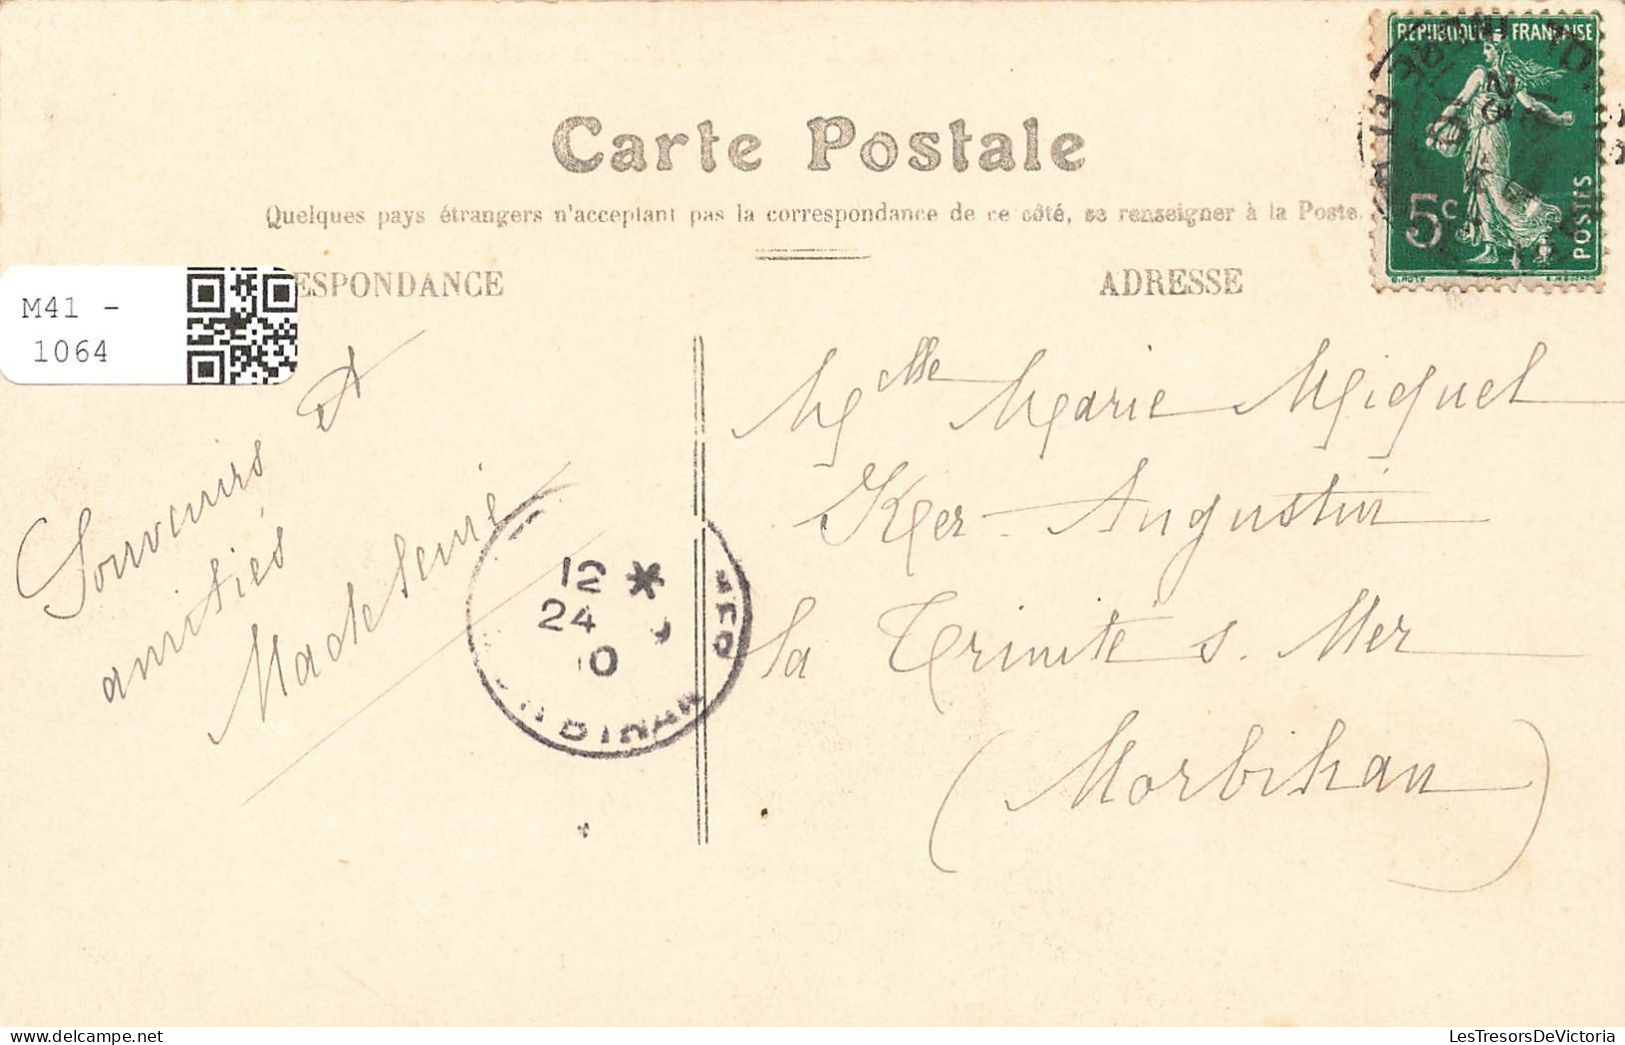 RÉPUBLIQUE FRANÇAISE
5c
POSTES
Carte Postale
Quelques pays étrangers n'acceptant pas la correspondance de ce côté, se renseigner à la Poste.
ESPONDANCE
ADRESSE
M41 -
1064
Souvenirs et
amitiés
Madeleine
12 *
24
Melle Marie Miquel
Ker-Augustin
la Trinité s. Mer
(Morbihan)
LesTresorsDeVictoria.com